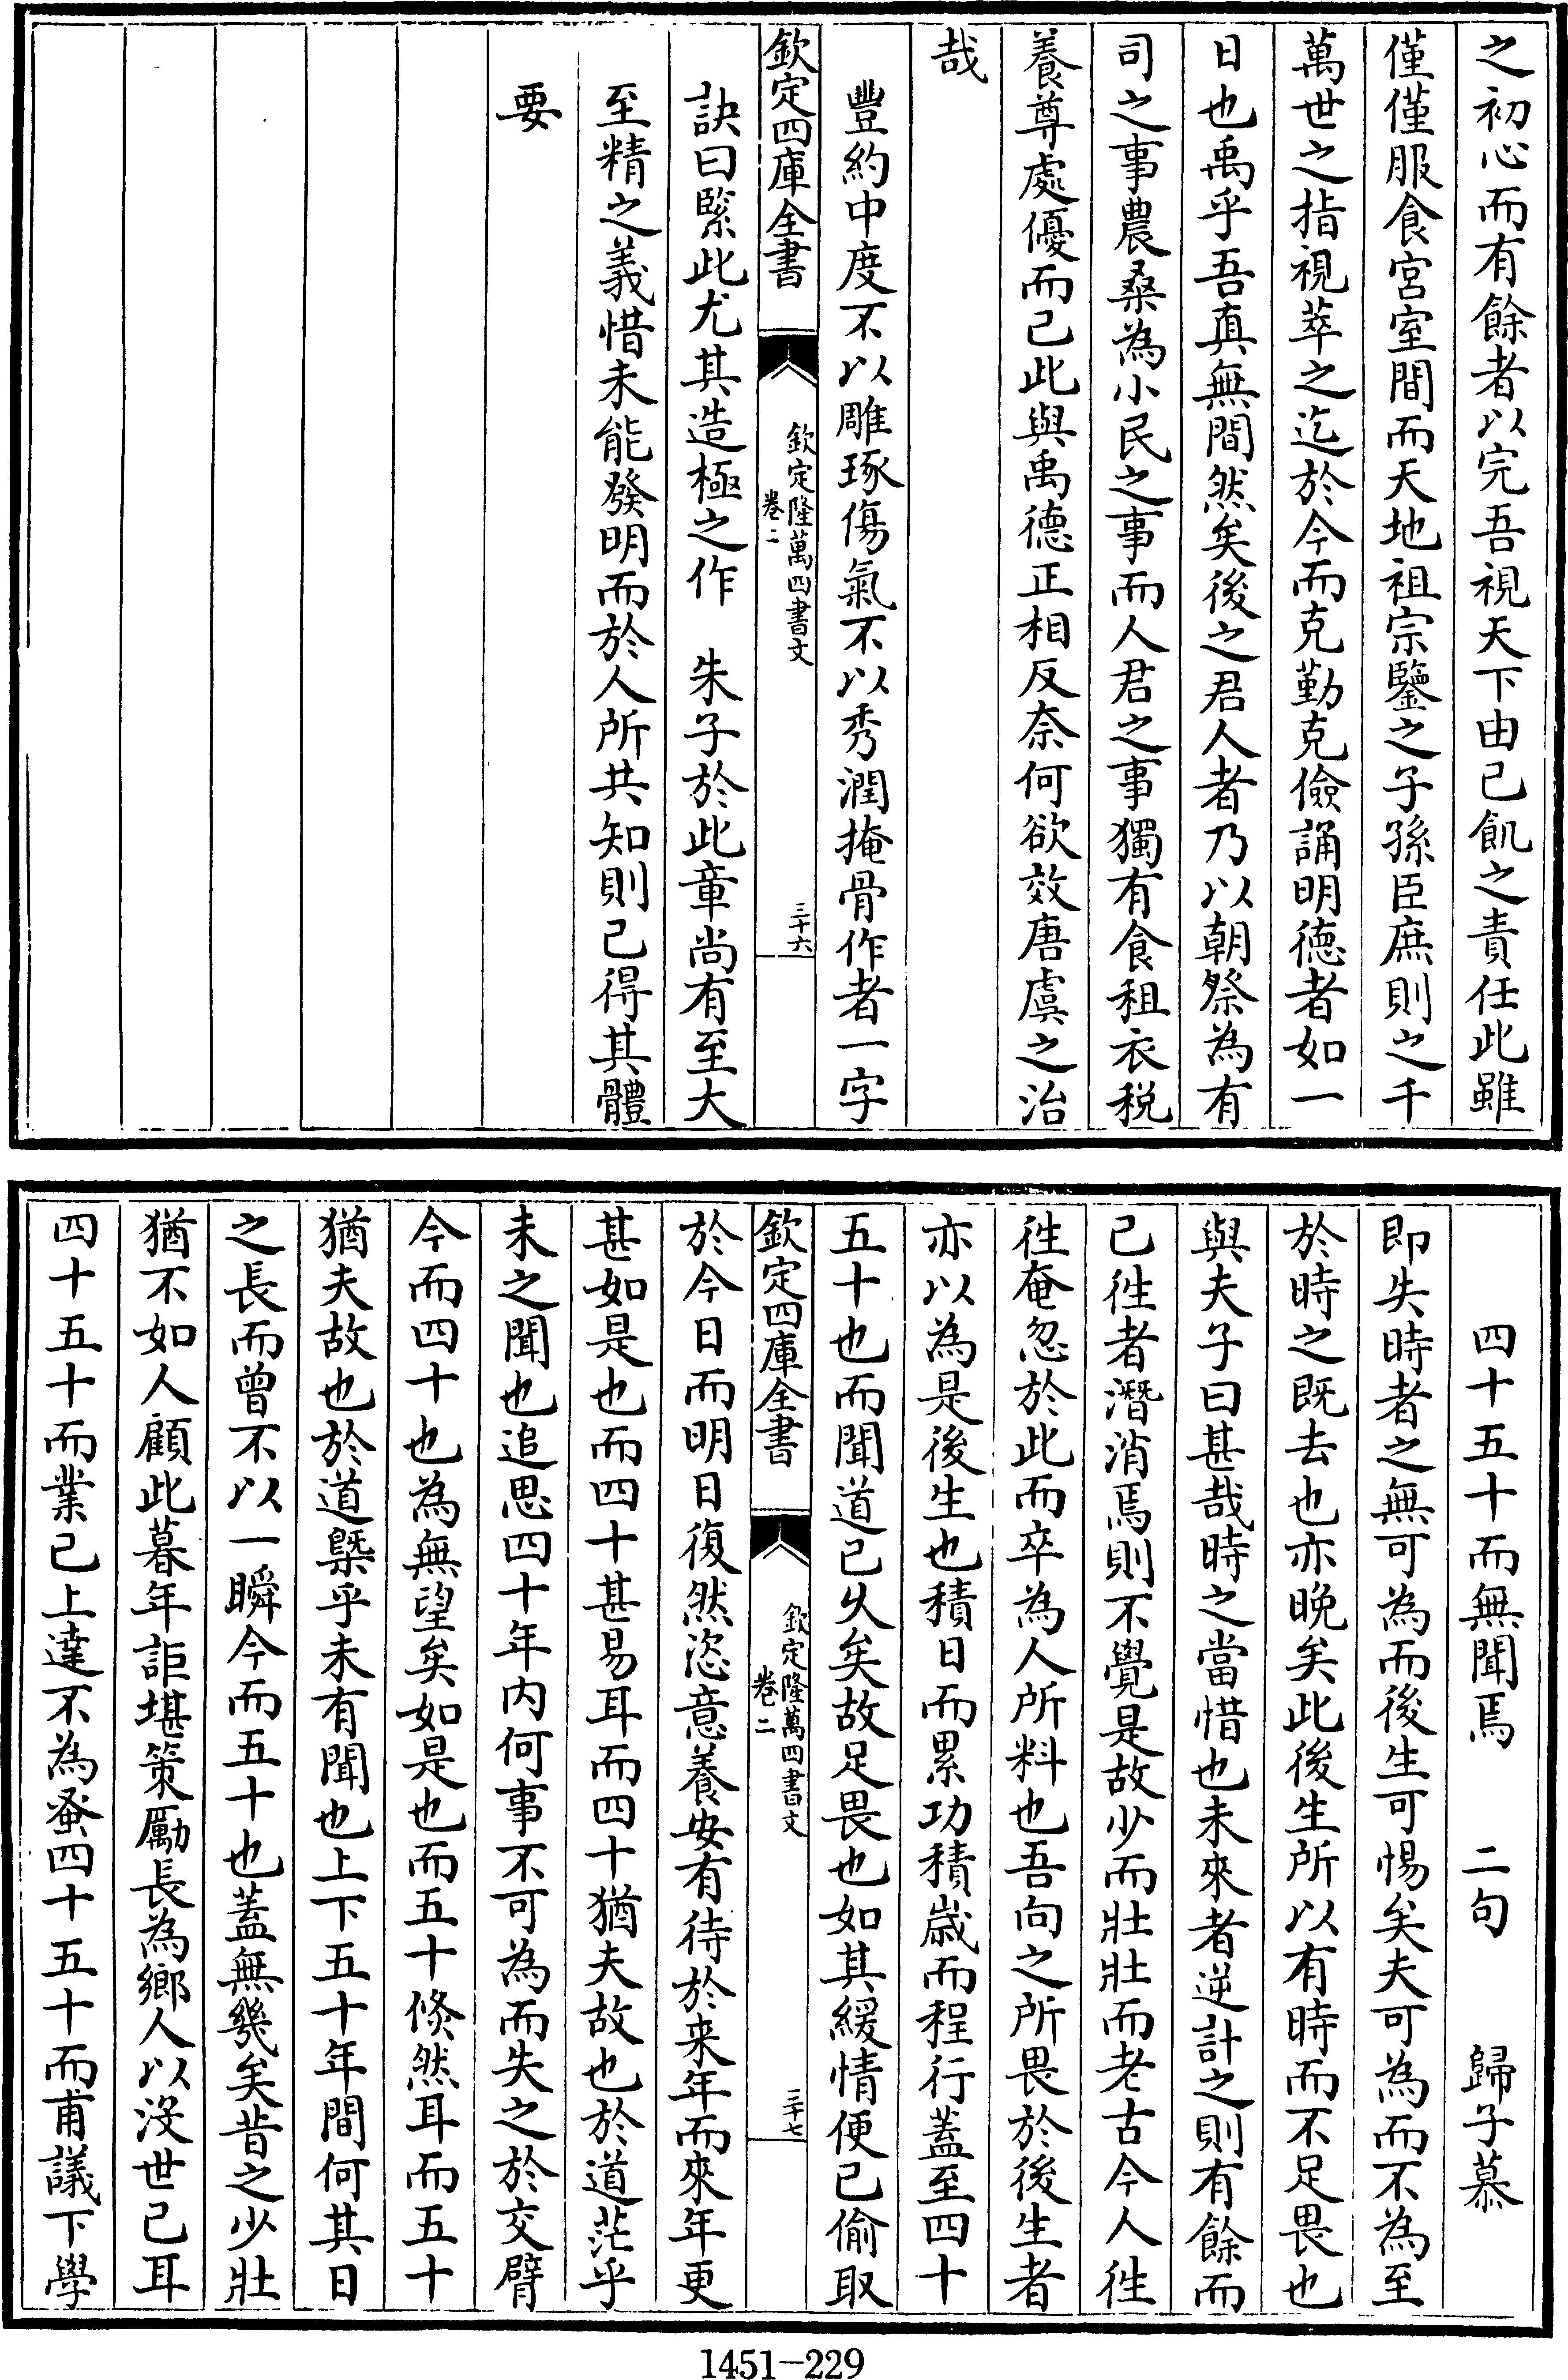 之初心而有餘者以完吾視天下由己飢之責任此雖
僅僅服食宮室間而天地祖宗鑒之子孫臣庶則之千
萬世之指視萃之迄於今而克勤克儉誦明德者如一
日也禹乎吾真無間然矣後之君人者乃以朝祭為有
司之事農桑為小民之事而人君之事獨有食租衣税
養尊處優而已此與禹德正相反奈何欲效唐虞之治
哉
豐約中度不以雕琢傷氣不以秀潤掩骨作者一字
欽定四庫全書
欽定隆萬四書文
卷二
三十六
訣曰緊此尤其造極之作 朱子於此章尚有至大
至精之義惜未能發明而於人所共知則已得其體
要
四十五十而無聞焉 二句 歸子慕
即失時者之無可為而後生可惕矣夫可為而不為至
於時之既去也亦晚矣此後生所以有時而不足畏也
與夫子曰甚哉時之當惜也未來者逆計之則有餘而
已徃者潛消焉則不覺是故少而壯壯而老古今人徃
徃奄忽於此而卒為人所料也吾向之所畏於後生者
亦以為是後生也積日而累功積歲而程行蓋至四十
五十也而聞道已久矣故足畏也如其緩情便已偷取
欽定四庫全書
欽定隆萬四書文
卷二
三十七
於今日而明日復然恣意養安有待於来年而來年更
甚如是也而四十甚易耳而四十猶夫故也於道茫乎
未之聞也追思四十年内何事不可為而失之於交臂
今而四十也為無望矣如是也而五十倐然耳而五十
猶夫故也於道槩乎未有聞也上下五十年間何其日
之長而曾不以一瞬今而五十也蓋無幾矣昔之少壯
猶不如人顧此暮年詎堪策勵長為鄉人以沒世已耳
四十五十而業已上達不為蚤四十五十而甫議下學
1451-229